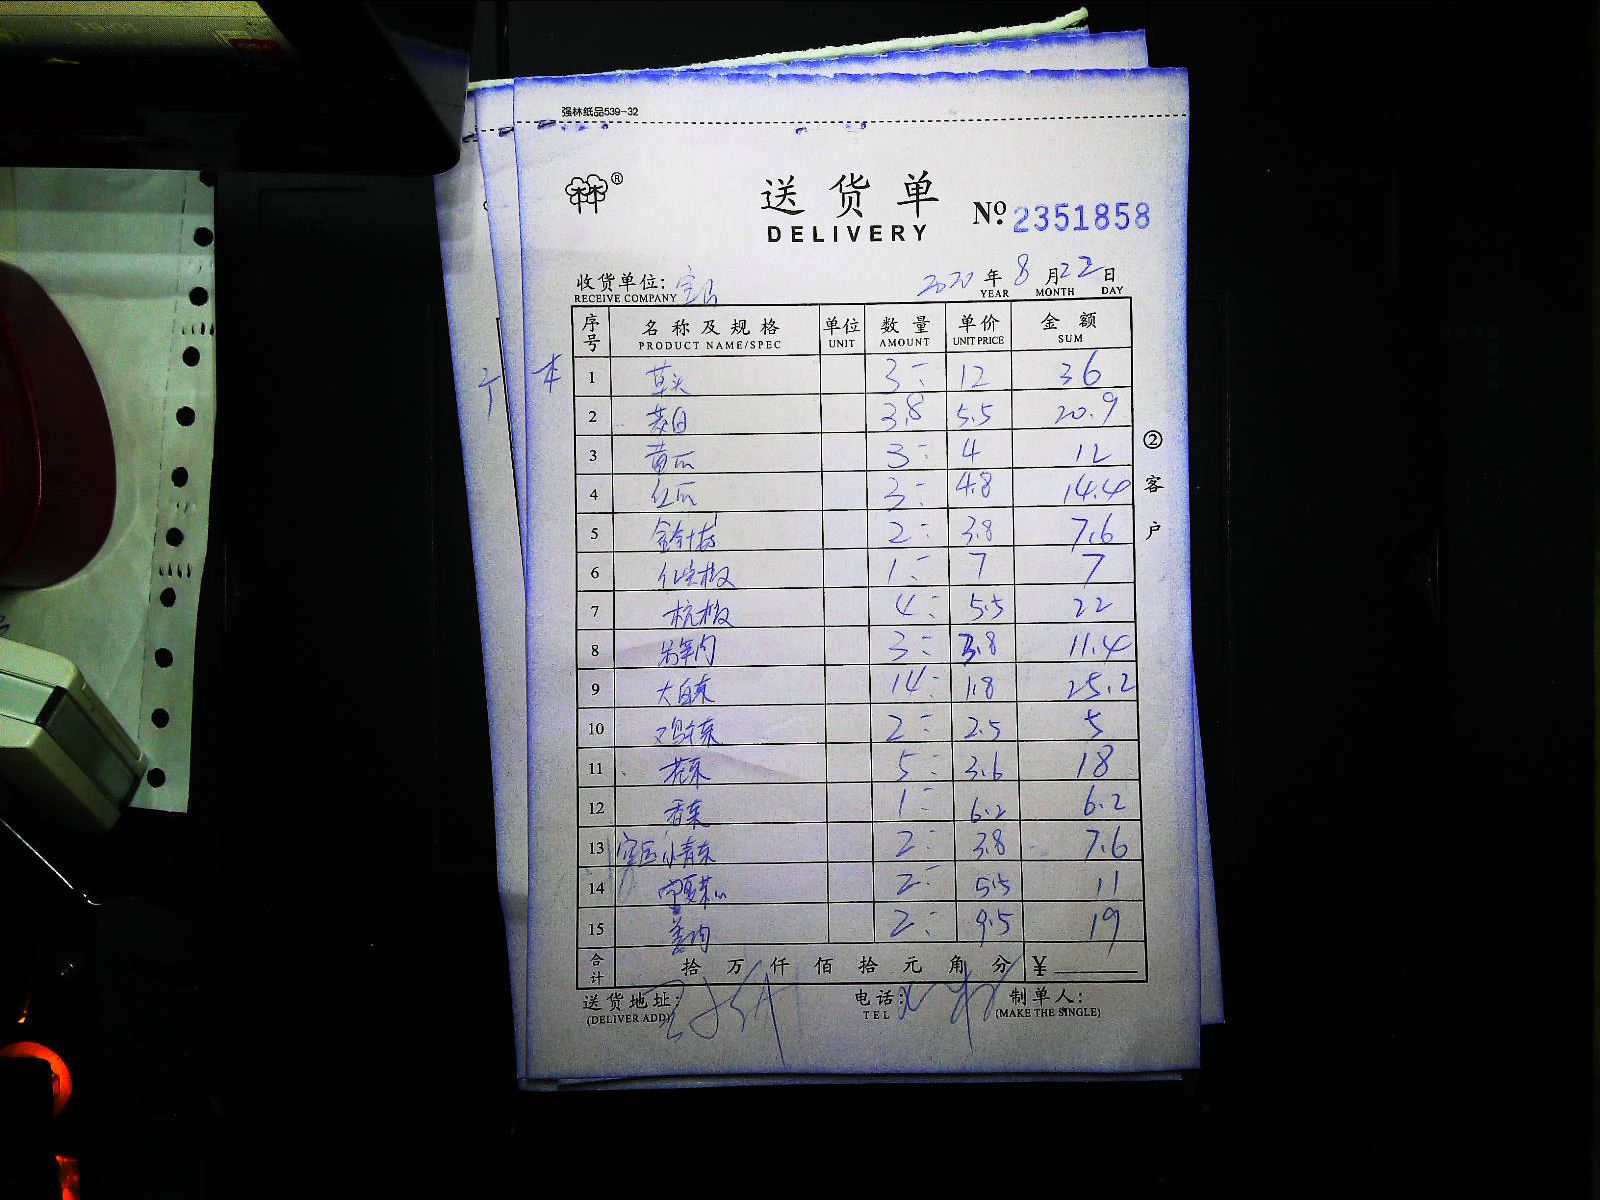 强林纸品539-32
®
送货单
DELIVERY
Nº 2351858
收货单位:
RECEIVE COMPANY
年 8 月 22 日
YEAR MONTH DAY
序号 名称及规格 单位 数量 单价 金额
PRODUCT NAME/SPEC UNIT AMOUNT UNIT PRICE SUM
本 1 草头 3 12 36
2 茭白 3.8 5.5 20.9
3 黄瓜 3 4 12
4 红瓜 3 4.8 14.4
5 金针菇 2 3.8 7.6
6 红尖椒 1 7 7
7 杭椒 4 5.5 22
8 3 3.8 11.4
9 大白菜 14 1.8 25.2
10 鸡毛菜 2 2.5 5
11 花菜 5 3.6 18
12 香菜 1 6.2 6.2
13 小青菜 2 3.8 7.6
14 2 5.5 11
15 2 9.5 19
合计 拾 万 仟 佰 拾 元 角 分 ¥
送货地址: 电话: 制单人:
(DELIVER ADD) TEL (MAKE THE SINGLE)
② 客户